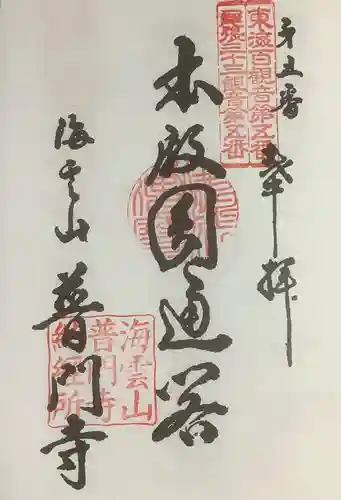 東海百観音第五番
尾張三十三観音第五番
第五番
奉拝
本殿圓通閣
海雲山
普門寺
海雲山
普門寺
納経所